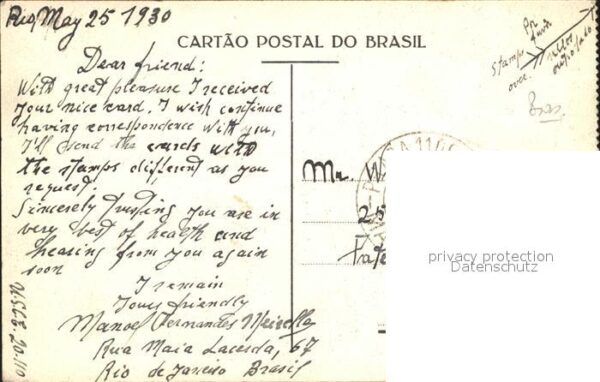 Rio, May 25 1930
CARTÃO POSTAL DO BRASIL
Dear friend:
With great pleasure I received
your nice card. I wish continue
having correspondence with you,
I'll send the cards with
the stamps different as you
request.
Sincerely trusting you are in
very best of health and
hearing from you again
soon
I remain
Yours friendly
Manoel Fernandes
Rua Maia Lacerda, 67
Rio de Janeiro Brasil
Stamps
over.
Por
sellos
outro lado
Bras.
Mr. W
25
Pate
privacy protection
Datenschutz